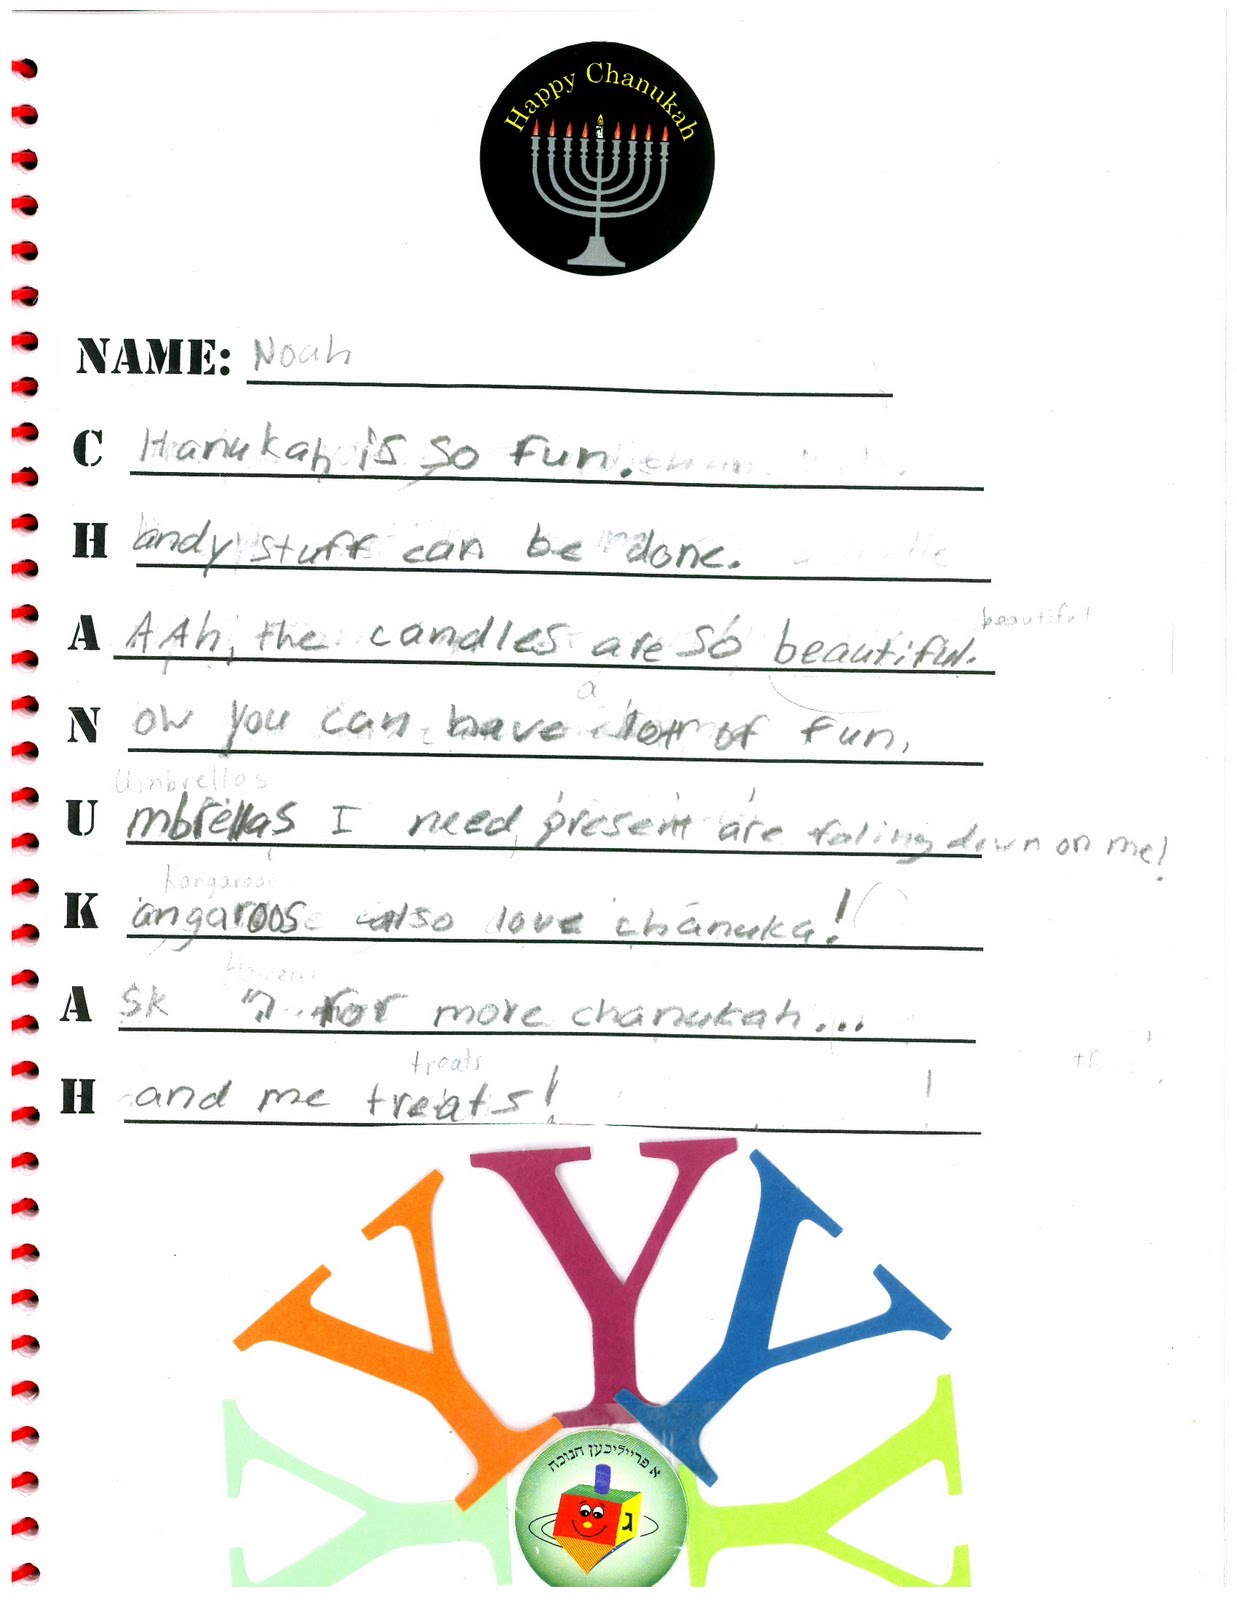 Happy Chanukah
NAME: Noah
C Hanukah is so fun.
H andy stuff can be done.
beautiful
A AAh, the candles are so beautiful.
a
N ow you can have lot of fun.
Umbrellas
U mbrellas I need, present are faling down on me!
kangaroose
K angaroos also love chanuka!
A sk 'ה for more chanukah...
treats
H and me treats!
Y Y Y Y Y Y Y
א פרייליכען חנוכה
ג